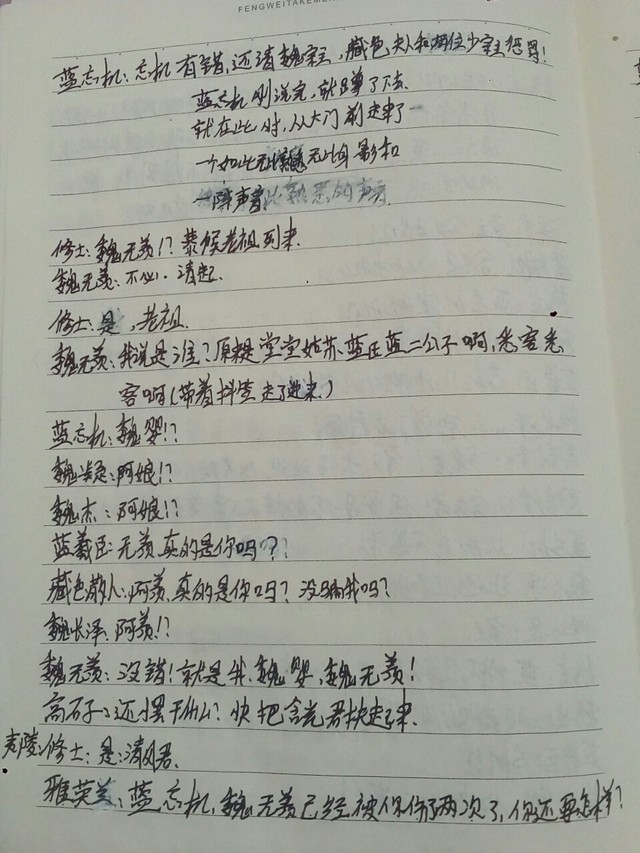 FENGWEITAKEME
蓝忘机:忘机有错,还请魏宗主,藏色夫人和两位少宗主惩罚!
蓝忘机刚说完,就跪了下去.
就在此时,从大门前走来了一
个如此无比熟悉无比身影和
一阵声音比熟悉的声音
修士:魏无羡!?恭候老祖到来.
魏无羡:不必.请起.
修士:是,老祖.
魏无羡:我说是谁?原是堂堂姑苏蓝氏蓝二公子啊,悉客悉
客啊(带着抖笠走了进来.)
蓝忘机:魏婴!?
魏:阿娘!?
魏杰:阿娘!?
蓝羲臣:无羡真的是你吗??
藏色散人:阿羡,真的是你吗?没骗我吗?
魏长泽:阿羡!?
魏无羡:没错!就是我,魏婴,魏无羡!
高石子:还摆干什么?快把含光君扶起来.
夷陵修士:是,清风君.
雅英兰:蓝忘机,魏无羡已经被你伤了两次了,你还要怎样?